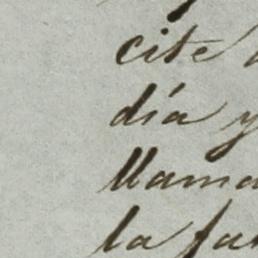 cite
día y
llama
la fa